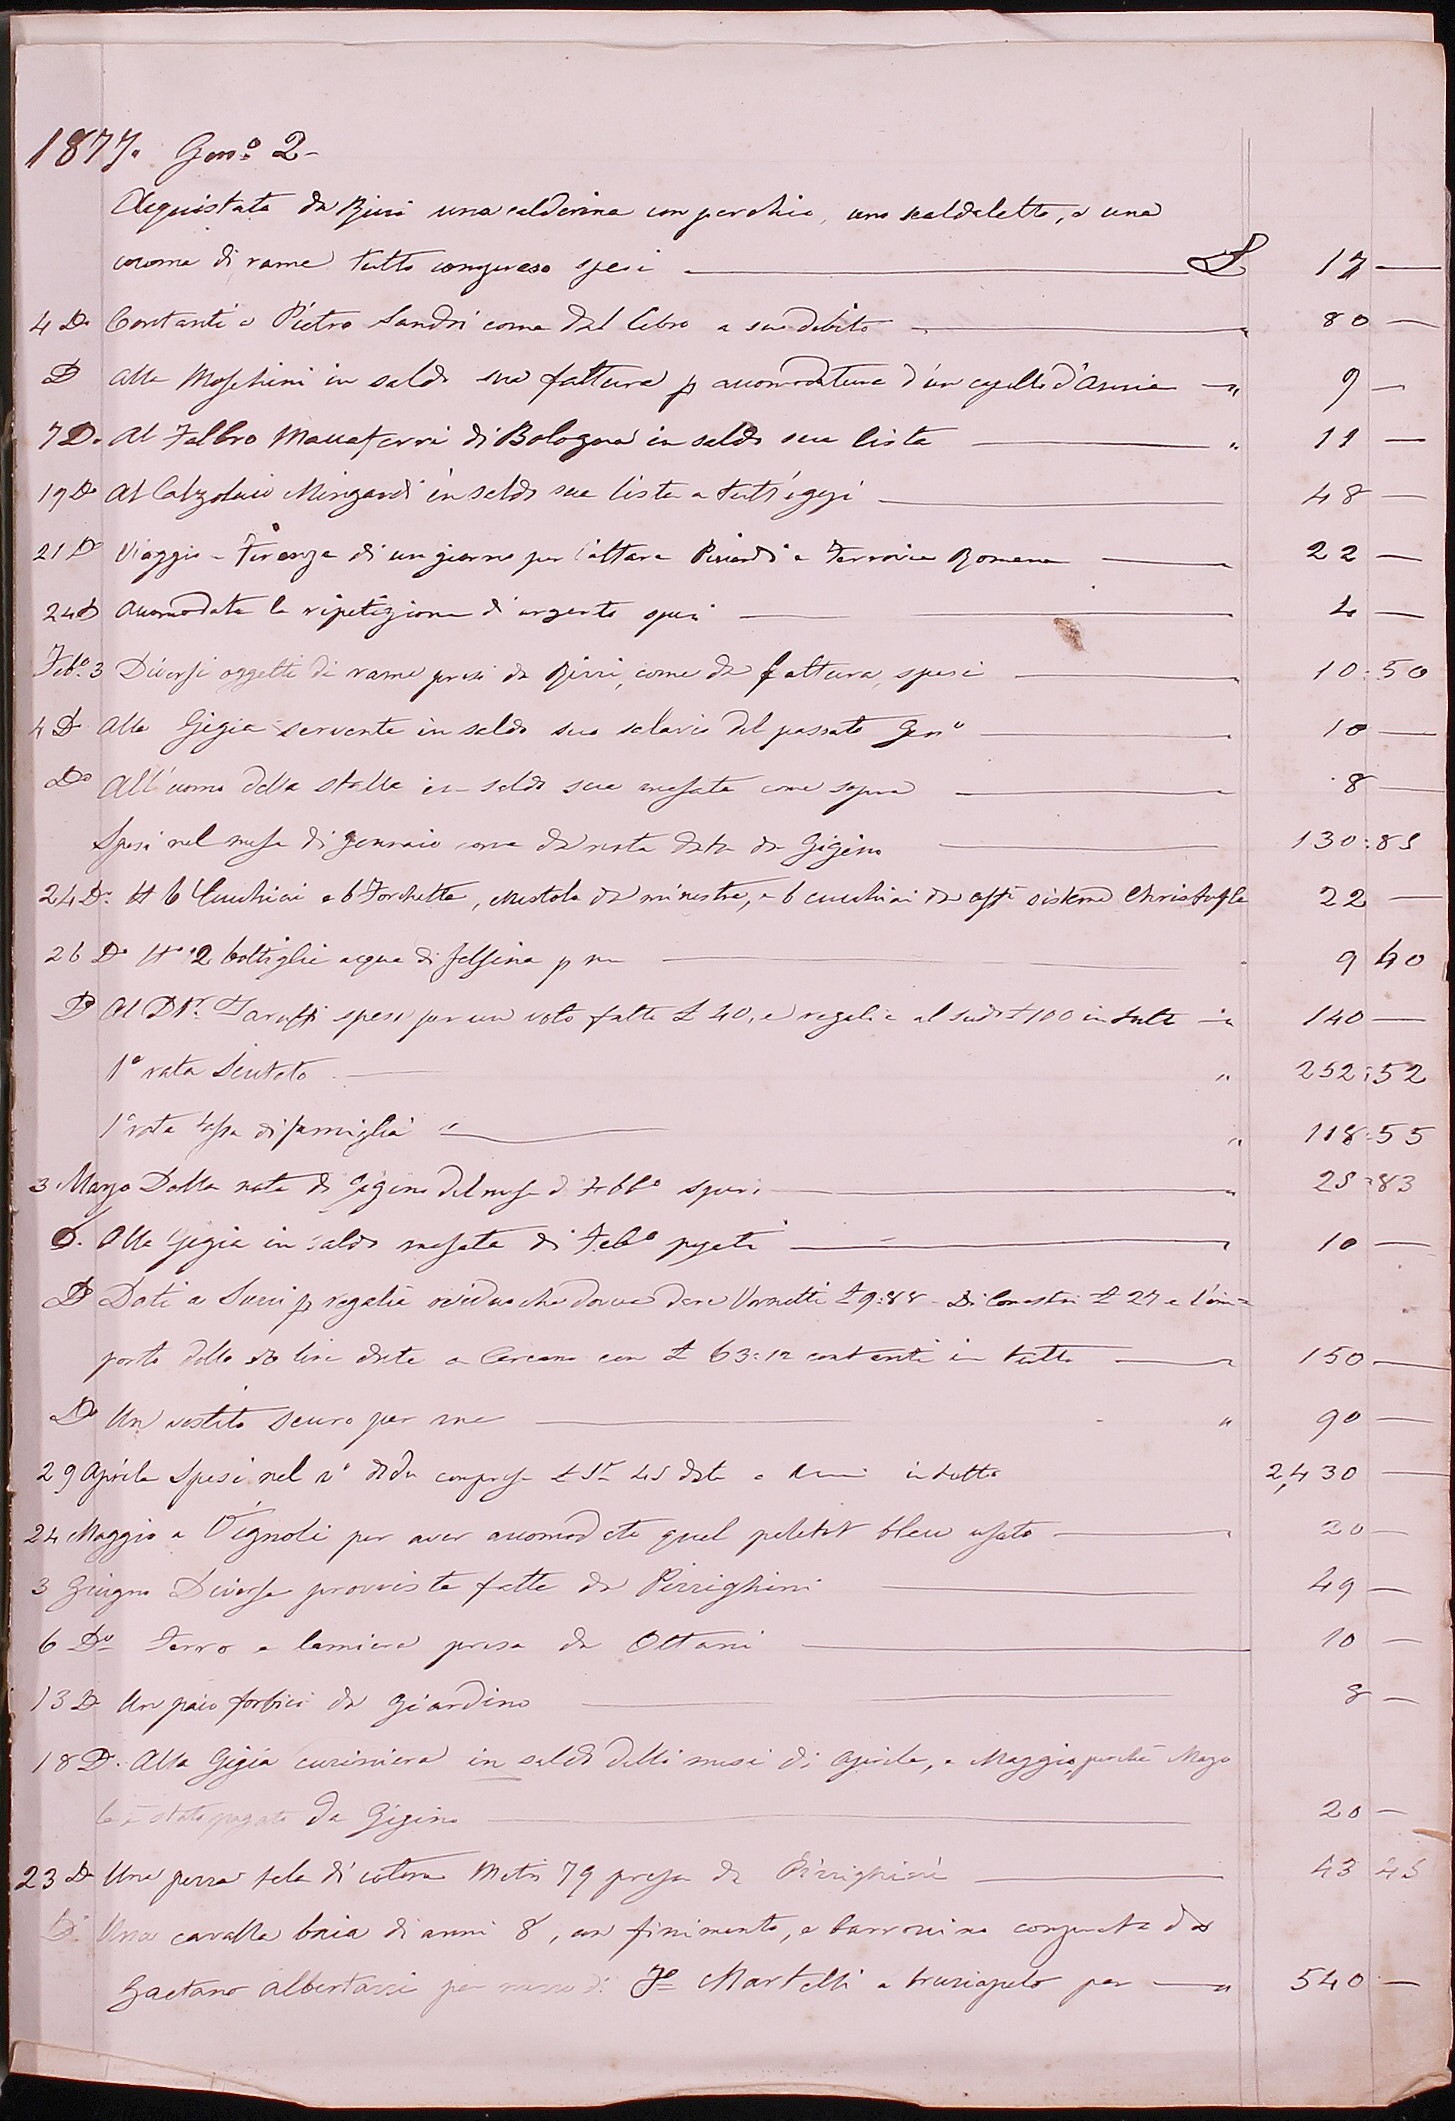 1877. Genº. 2 -
Acquistata da Rizzi una calderina con perchio, uno scaldaletto, e una
cocoma di rame tutto compreso spesi £ 17 —
4 Dº Contanti a Pietro Sandri come dal libro a suo debito " 80 —
Dº Alla Moschini in saldo sua fattura p accomodatura d'un capello d'Annia " 9 —
7 Dº. Al Fabbro Maccaferri di Bologna in saldo sua lista " 11 —
19 Dº Al Calzolaio Mingardi in saldo sua lista a tutt'oggi 48 —
21 Dº Viaggio a Firenze di un giorno per l'affare e Ferrovia Romana 22 —
24 Dº Accomodata la ripetizione d'argento spesi 4 —
Febº. 3 Diversi oggetti di rame presi da Rizzi, come da fattura, spesi 10:50
4 Dº Alla Gigia servente in saldo suo salario del passato Genº 10 —
Dº All'uomo della stalla in saldo sua mesata come sopra 8 —
Spesi nel mese di Gennaio come da nota data da Gigino 130:85
24 Dº. Nº 6 Cucchiai e 6 Forchette, Mestola da minestra, e 6 cucchiai da caffè sistema Christophle 22 —
26 Dº Nº 2 bottiglie acqua di felsina p me 9 40
Dº Al Dr. Taruffi spese per un voto fatto £ 40, e regalie al sudº £ 100 in tutto " 140 —
1ª rata Scutato " 252:52
1ª rata tassa di famiglia " 118:55
3 Marzo Dalla nota di Gigino del mese di Febbº spesi " 25:83
Dº. Alla Gigia in saldo mesata di Febº pagati 10 —
Dº Dati a Succi p regalie residuo che doveva dare £ 9:88 - Di £ 27 e l'im=
porto delle lire date a con £ 63:12 contanti in tutto 150 —
Dº Un vestito scuro per me " 90 —
29 Aprile Spesi nel comprese £ date a in tutto 2,430 —
24 Maggio a Vignoli per aver accomodato quel peletot bleu usato 20 —
3 Giugno Diverse provviste fatte da Pizzighini 49 —
6 Dº Ferro e lamiera presa da Ottani 10 —
13 Dº Un paio forbici da Giardino 8 —
18 Dº. Alla Gigia cuciniera in saldo delli mesi di Aprile, e Maggio, perchè Marzo
le è stato pagato da Gigino 20 —
23 Dº Una pezza tela di cotone Metri 79 presa da Pizzighini 43 45
Dº. Una cavalla baia di anni 8, un finimento, e barrocino comprata da
Gaetano Albertazzi per mezzo di Martelli a per " 540 —